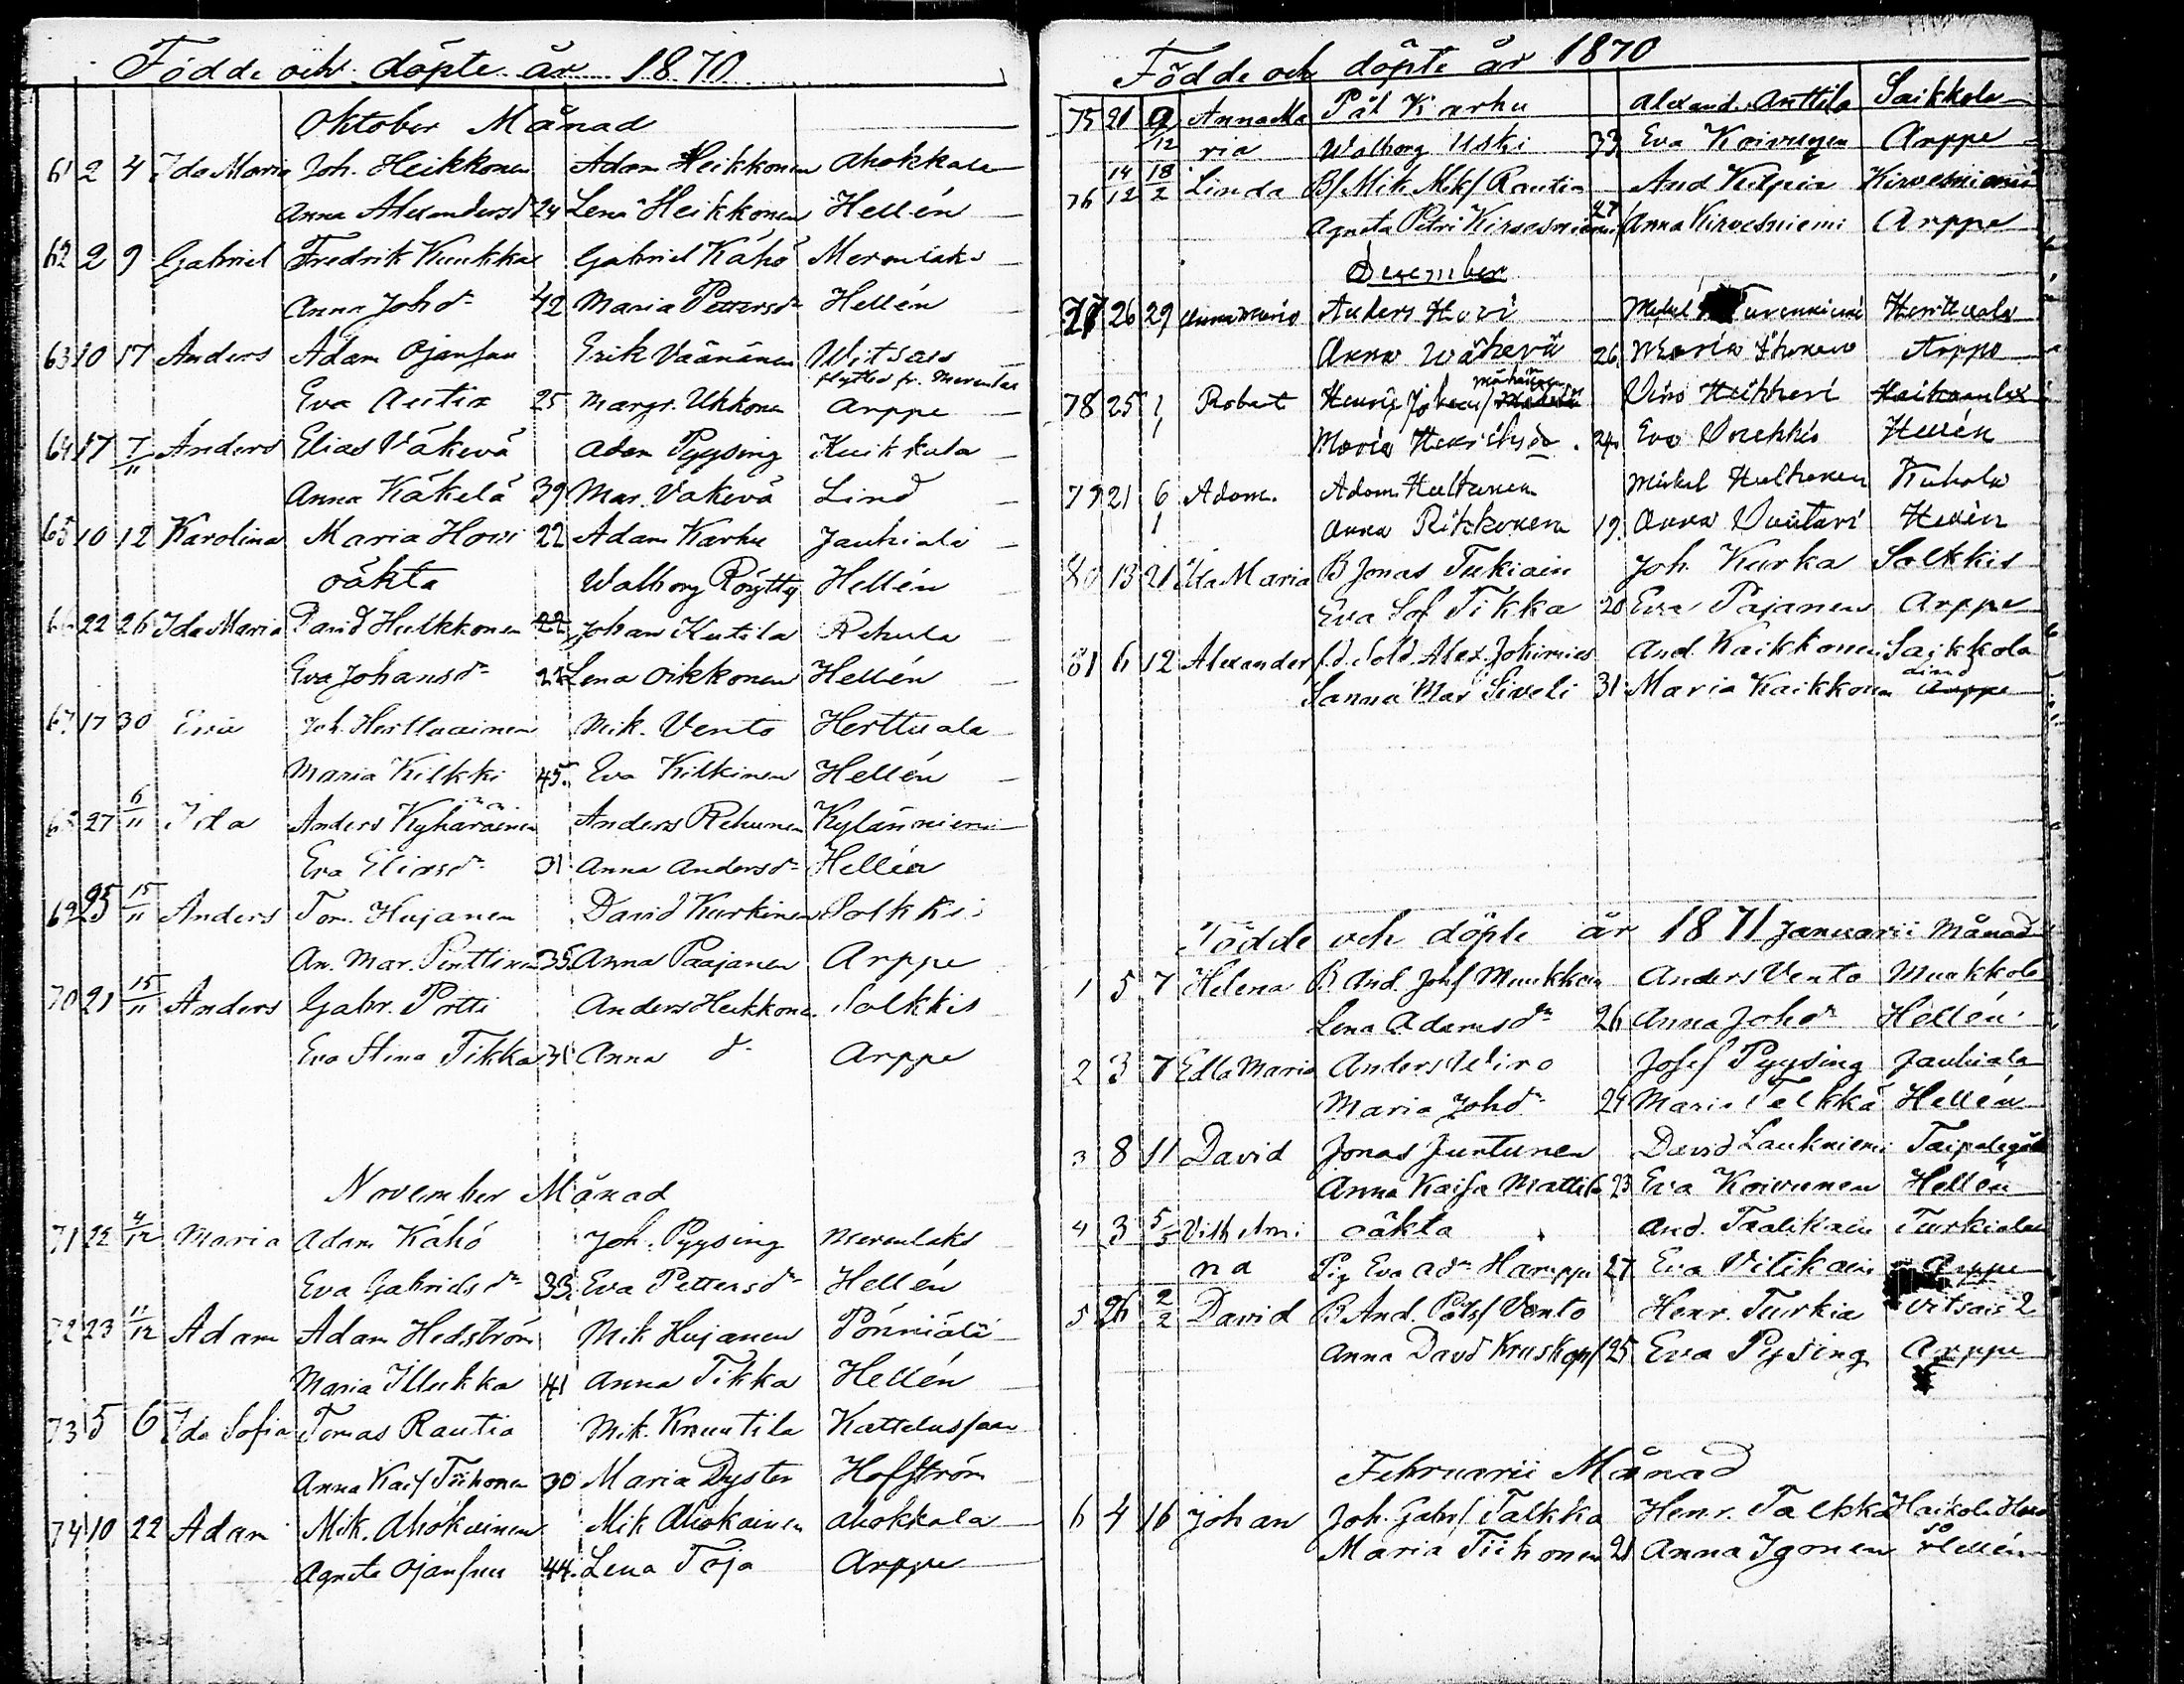 Födde och döpte år 1870
Oktober Månad
61 2 4 Ida Maria Joh. Heikkonen Adam Heikkonen Ahokkala
Anna Alexandersdr 24 Lena Heikkonen Hellén
62 2 9 Gabriel Fredrik Kuukka Gabriel Kähö Meronlaks
Anna Johdr 42 Maria Pettersdr Hellén
63 10 17 Anders Adam Ojansuu Erik Väänänen Witsais
flytted fr. Meronlax
Eva Autia 25 Margr. Ukkonen Arppe
64 17 7/11 Anders Elias Väkevä Adam Pyysing Kuikkala
Anna Käkelä 39 Mar. Väkevä Lind
65 10 12 Karolina Maria Howi 22 Adam Karhu Jauhiala
oäkta Walborg Röytty Hellén
66 22 26 Ida Maria David Hulkkonen 22 Johan Kutila Rehula
Eva Johansdr 22 Lena Oikkonen Hellén
67 17 30 Eva Joh. Herttuainen Mik. Vento Herttuala
Maria Kilkki 45 Eva Kilkinen Hellén
68 27 6/11 Ida Anders Kyhäräinen Anders Rehunen Kyläniemi
Eva Eliasdr 31 Anna Andersdr Hellén
69 25 15/11 Anders Tom. Hujanen David Kurkinen Solkkis
An. Mar. Pinttinen 35 Anna Paajanen Arppe
70 21 15/11 Anders Gabr. Pötti Anders Heikkonen Solkkis
Eva Stina Tikka 31 Anna dr Arppe
November Månad
71 22 4/12 Maria Adam Kähö Joh. Pyysing Meronlaks
Eva Gabrielsdr 33 Eva Pettersdr Hellén
72 23 11/12 Adam Adam Hedström Mik Hujanen Pönniälä
Maria Illukka 41 Anna Tikka Hellén
73 5 6 Ida Sofia Tomas Rautia Mik. Knuutila Kattelussaar
Anna Kais Tiihonen 30 Maria Dyster Hofström
74 10 22 Adam Mik. Ahokainen Mik Ahokainen Ahokkala
Agneta Ojansuu 44 Lena Toja Arppe
Födde och döpte år 1870
75 21 9/12 Anna Ma Pål Karhu Alexand. Anttila Saikkola
ria Walborg Uski 33 Eva Koivunen Arppe
76 14/12 18/2 Linda B/ Mik Miks/ Rautia And Kilpia Kirvesniemi
Agneta Petri Kirvesniemi 27 Anna Kirvesniemi Arppe
December
77 26 29 Anna Maria Anders Hovi Mikel Turunkivi Herttuala
Anna Wäkevä 26 Maria Ihonen Arppe
78 25 1/1 Robert Henrik Johan/ Vino Heikkeri
Maria Henriksdr 24 Eva Hellén
79 21 6/1 Adam Adam Hultunen Mikel Hultunen Kuhala
Anna Rikkonen 19 Anna Vuutari Hellén
80 13 21 Ulla Maria B Jonas Tukiain Joh. Kurka Solkkis
Eva Sof Tikka 20 Eva Pajanen Arppe
81 6 12 Alexander f.d. Sold. Alex. Johinies And. Kaikkonen Saikkola
Lind
Sanna Mar Siveli 31 Maria Kaikkonen Arppe
Födde och döpte år 1871 Januarii Månad
1 5 7 Helena B. And. Johs/ Muukkain Anders Vento Muukkola
Lena Adamsdr 26 Anna Johdr Hellén
2 3 7 Edla Maria Anders Wiro Josef Pyysing Jauhiala
Maria Johdr 24 Maria Talkka Hellén
3 8 11 David Jonas Juntunen David Laukniemi Taipalegård
Anna Kaisa Mattila 23 Eva Koivunen Hellén
4 3 5/5 Vilhelmi oäkta And. Taalikain Turkiala
na Pig Eva Adr Hamppu 27 Eva Vilikain Arppe
5 26 2/2 David B And. Påls/ Vento Henr. Turkia Vitsais 2
Anna David Kruskopf 25 Eva Pysing Arppe
Februarii Månad
6 4 16 Johan Joh. Gabr/ Talkka Henr. Talkka Haikola
Maria Tiihonen 21 Anna Igonen Hellén